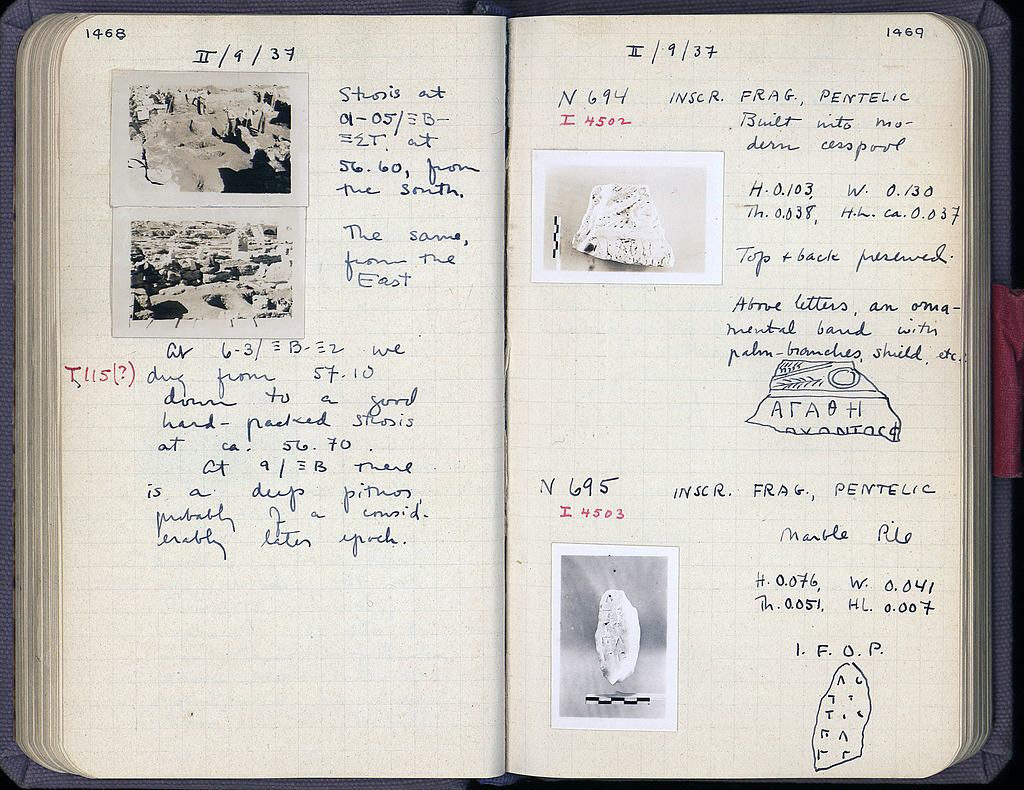 1468
II/9/37
Strosis at
01-05/ΞΒ-
ΞΣΤ, at
56.60, from
the South.
The same,
from the
East
At 6-3/ΞΒ-Ξ2 we
T,115(?)
dug from 57.10
down to a good
hard-packed strosis
at ca. 56.70.
At 9/ΞΒ there
is a deep pithos,
probably of a consid-
erably later epoch.
1469
II/9/37
N 694 INSCR. FRAG., PENTELIC
I 4502
Built into mo-
dern cesspool
H. 0.103, W. 0.130
Th. 0.038, H.L. ca. 0.037
Top + back preserved.
Above letters, an orna-
mental band with
palm-branches, shield, etc.:
ΑΓΑΘΗ
N 695 INSCR. FRAG., PENTELIC
I 4503
Marble Pile
H. 0.076, W. 0.041
Th. 0.051, HL. 0.007
I. F. O. P.